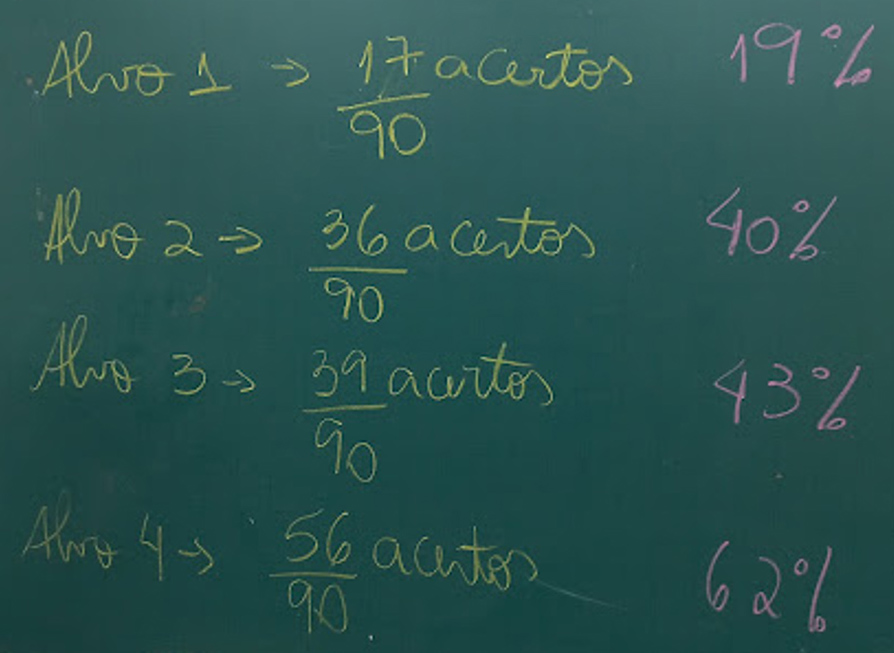 Alvo 1 → 17 acertos 19%
90
Alvo 2 → 36 acertos 40%
90
Alvo 3 → 39 acertos 43%
90
Alvo 4 → 56 acertos 62%
90